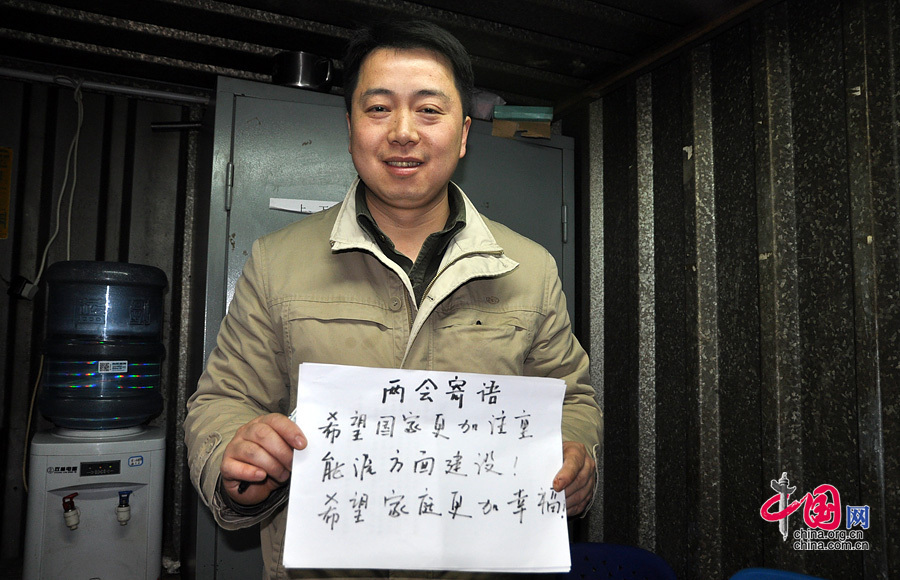 两会寄语
希望国家更加注重
能源方面建设！
希望家庭更加幸福！
中国网
china.org.cn
china.com.cn